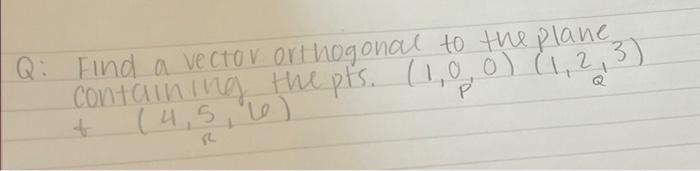 Q: Find a vector orthogonal to the plane
containing the pts. (1,0,0) (1,2,3)
P Q
+ (4,5,6)
R